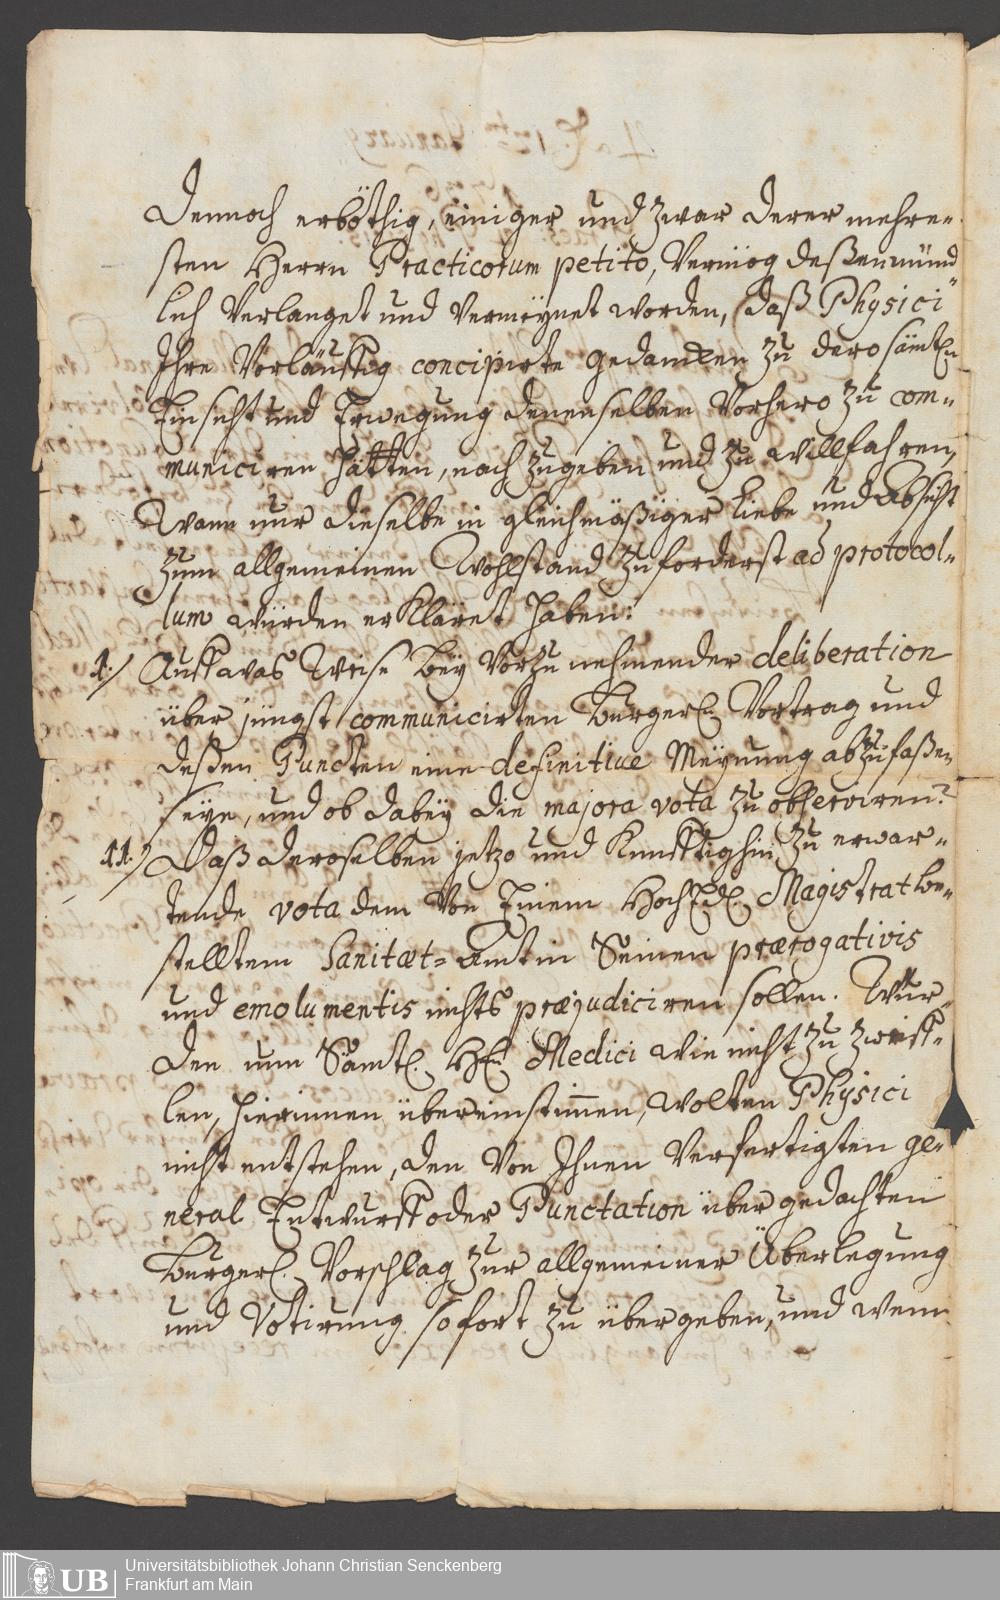 Dennoch erböthig, einiger und zwar derer mehre-
sten Herrn Practicorum petito, Vermög deßen münd-
lich Verlanget und Vermeynet worden, daß Physici
Ihre Vorläuffig concipirte gedancken zu dero sämtln
Einsicht und Erwegung denenselben Vorhero zu com-
municiren hätten, nach zugeben und zu willfahren,
Wann nur dieselbe in gleichmäßiger Liebe und Absicht
zum allgemeinen Wohlstand zuforderst ad protocol-
lum würden erkläret haben:
1./ Auff was Weise bey Vorzunehmender deliberation
über jüngst communicirten Burgerln Vortrag und
deßen Puncten eine definitive Meynung abzufaßen
seye, und ob dabey die majora vota zu observiren?
11./ Daß deroselben jetzo und Künfftighin zu erwar-
tende vota dem Von Einem HochEdl. Magistrat be-
stelltem Sanitæt-Amt in Seinen prærogativis
und emolumentis nichts præjudiciren sollen. Wür-
den nun Sämtl. Hln Medici wie nicht zu zweiff-
len, hierinnen übereinstim̅en, wolten Physici
nicht entstehen, den Von Ihnen Verfertigten ge-
neral Entwurff oder Punctation über gedachten
Burgerl. Vorschlag zur allgemeiner Überlegung
und Votirung sofort zu übergeben, und wenn
UB Universitätsbibliothek Johann Christian Senckenberg
Frankfurt am Main